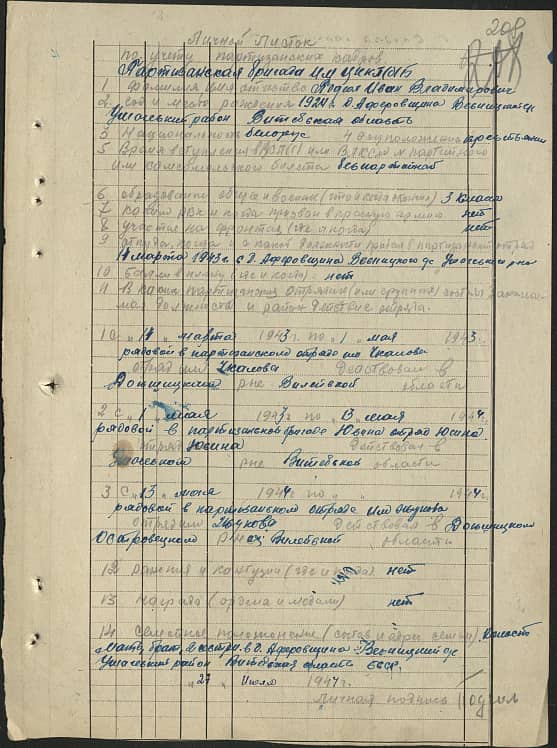 209
Личной Листок
по учету партизанских кадров
Партизанская бригада им ЦК КП(б)Б
1 Фамилия имя отчество Иван Владимирович
2 год и место рождения 1924 г. д. Аферовщина Весницкий с/с
Ушачский район Витебская область
3 Национальность белорус 4 соцположение крестьянин
5 Время вступления в ВКП(б) или ВЛКСМ № партийного
или комсомольского билета беспартийный
6 образование общее и военное (что и когда окончил) 3 класса
7 Каким РВК и когда призван в красную армию нет
8 участие на фронтах (где и когда) нет
9 откуда, когда и в какой должности прибыл в партизанский отряд
11 марта 1943 г. с д. Аферовщина Весницкого с/с Ушачский р-на
10 Был ли в плену (где и когда) - нет
11 В каких партизанских отрядах (или группах) состоял занимаемая
должность и район действие отряда.
1 с "11" марта 1943 г. по "1" мая 1943 г.
рядовой в партизанском отряде им Чкалова
отряд им Чкалова Действовал в
Докшицком р-не Вилейской области
2 с "1" мая 1943 г. по "13" мая 1944 г.
рядовой в партизанской бригаде Юдина отряд Юдина
отряд Юдина Действовал в
Ушачском р-не Витебской области
3 с "13" мая 1944 г. по " " 1944 г.
рядовой в партизанском отряде им Жукова
отряд им Жукова Действовал в Докшицком
Островецком р-нах Вилейской области
12 ранения и контузии (где и когда) нет
13 награда (ордена и медали) нет
14 Семейное положение (состав и адрес семьи). Холост
Мать, брат, сестры в д. Аферовщина Весницкий с/с
Ушачский район Витебская область БССР.
"27" Июля 1944 г.
личная подпись